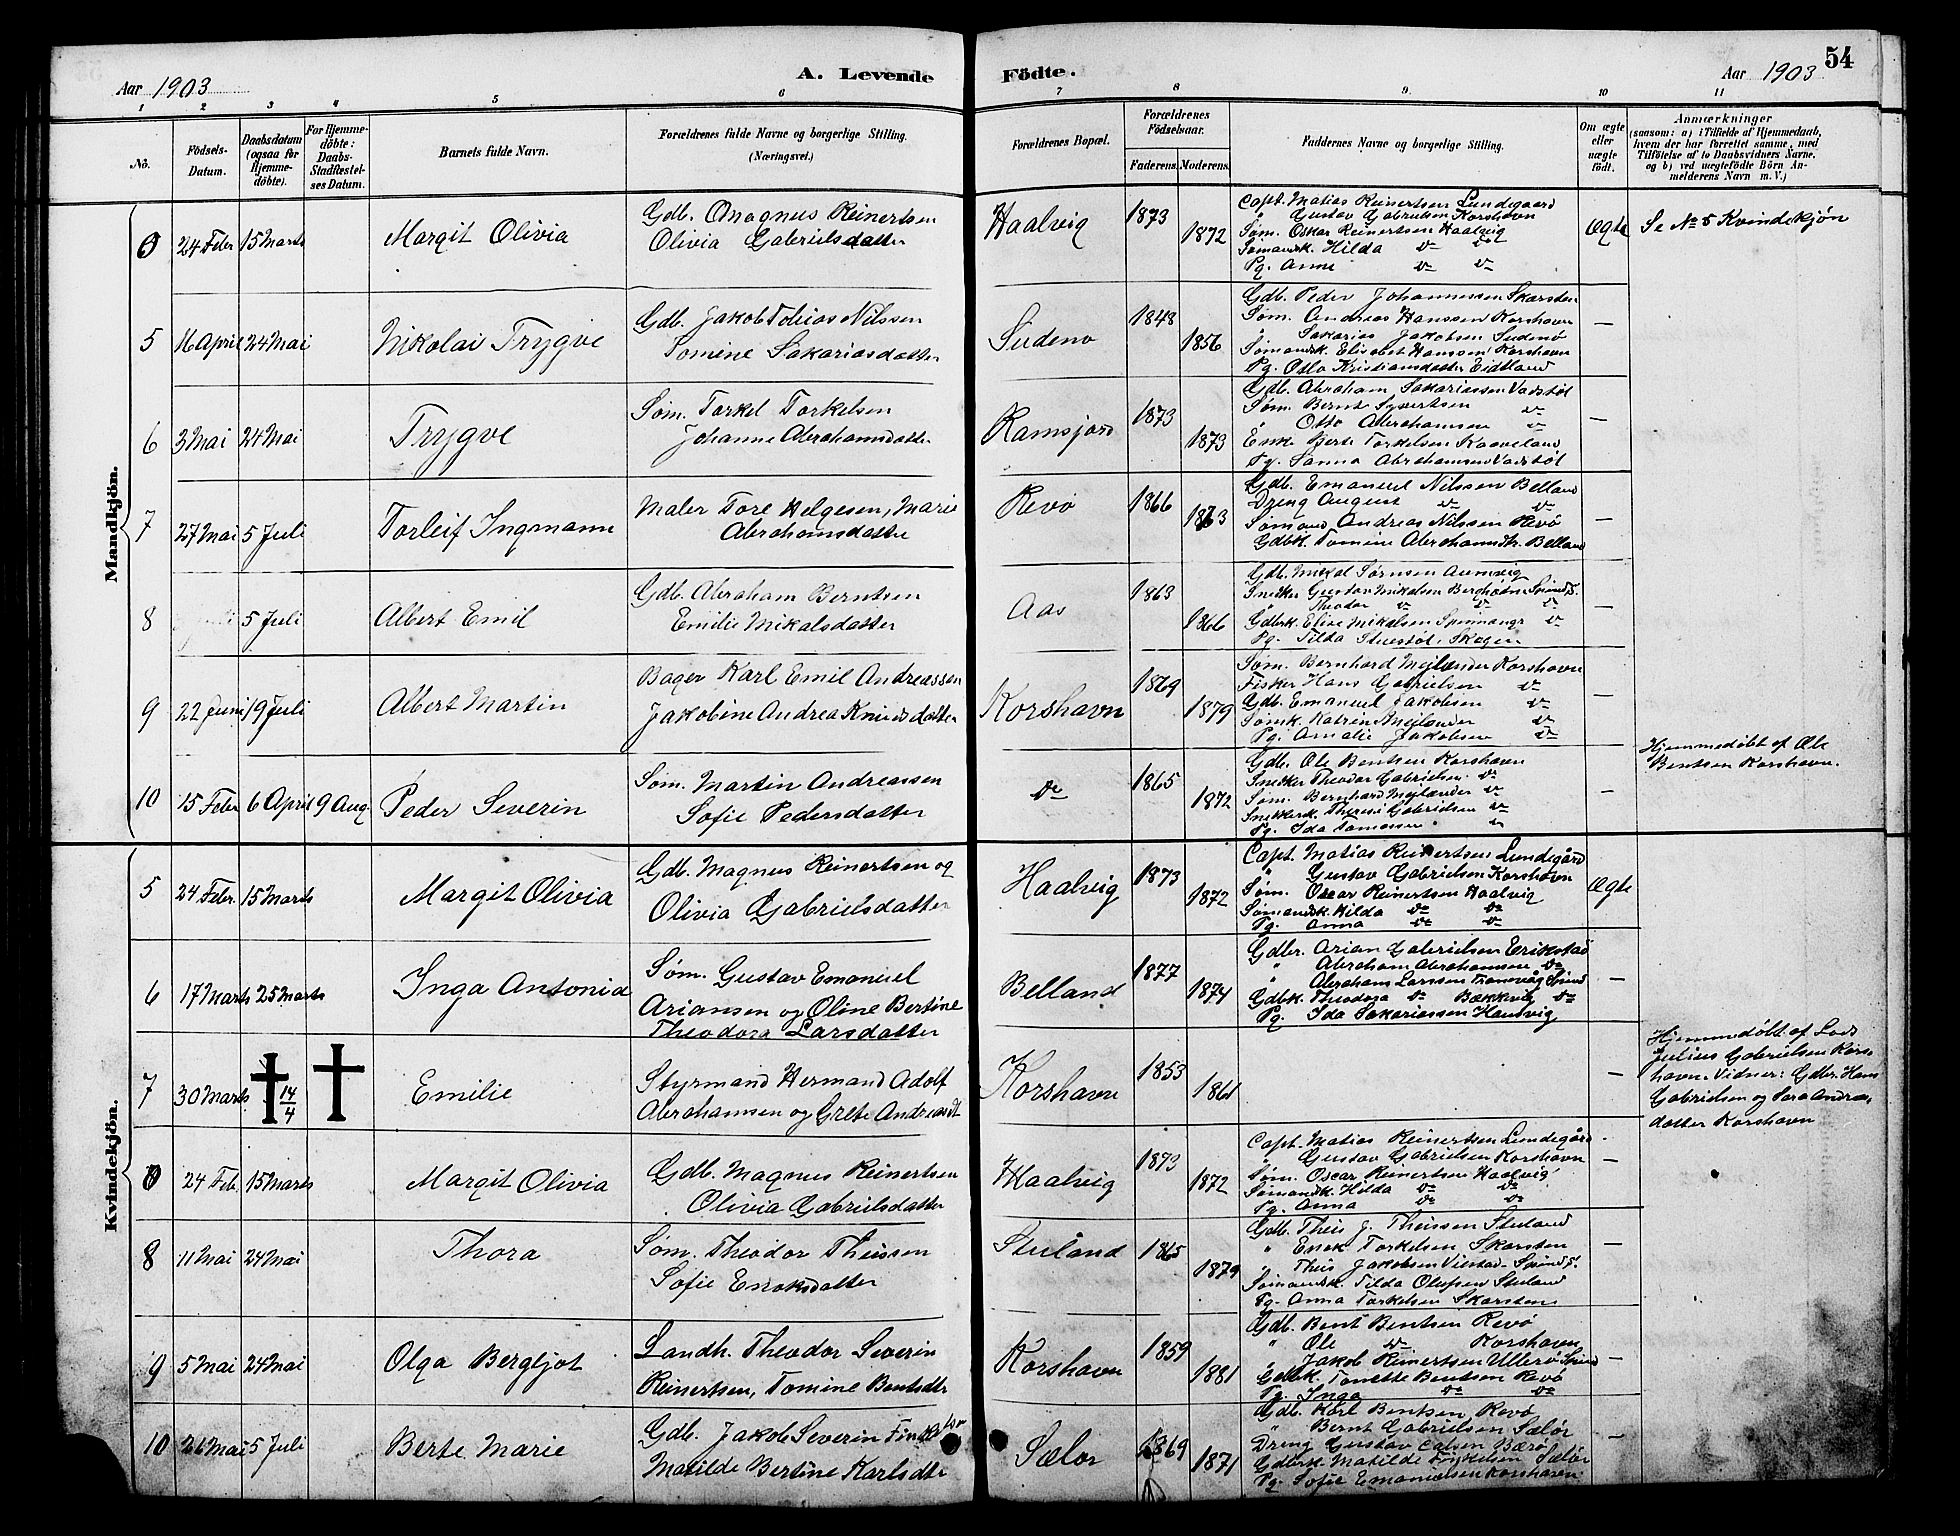 54
Aar 1903
A. Levende Födte.
Aar 1903
1 2 3 4 5 6 7 8 9 10 11
No.
Födsels-Datum.
Daabsdatum (ogsaa for Hjemme-döbte).
For Hjemme-döbte: Daabs-Stadfæstel-ses Datum.
Barnets fulde Navn.
Forældrenes fulde Navne og borgerlige Stilling.
(Næringsvei.)
Forældrenes Bopæl.
Forældrenes Födselsaar.
Faderens. Moderens.
Faddernes Navne og borgerlige Stilling.
Om ægte eller uægte födt.
Anmærkninger
(saasom: a) i Tilfælde af Hjemmedaab,
hvem der har forrettet samme, med
Tilföielse af to Daabsvidners Navne,
og b) ved uægtefödte Börn An-
melderens Navn m. V.)
Mandkjön.
0 24 Febr 15 Marts Margit Olivia
Gdb. Magnus Reinertsen
Olivia Gabrielsdatter
Haalvig 1873 1872
Capt. Matias Reinertsen Lundegaard
" Gustav Gabrielsen Korshavn
Søm. Oskar Reinertsen Haalvig
Sømandsk. Hilda do do
Pg. Anne do do
Ægte
Se No 5 Kvindekjøn
5 16 April 24 Mai Nikolai Trygve
Gdb. Jakob Tobias Nilssen
Tomine Sakariasdatter
Sudenø 1848 1856
Gdb. Peder Johannessen Skarsten
Søm. Andreas Hanssen Korshavn
" Sakarias Jakobsen Sudenø
Sømandsk. Elisabet Hanssen Korshavn
Pg. Otto Kristiansdatter Eidtland
—
6 3 Mai 24 Mai Trygve
Søm. Torkel Torkelsen
Johanne Abrahamsdatter
Ramsjord 1873 1873
Gdb. Abraham Sakariassen Vadstøl
Søm. Bernt Syvertsen do
" Otto Abrahamsen do
Enke Berte Torkelsen Kaaveland
Pg. Sanna Abrahamsen Vadstøl
—
7 27 Mai 5 Juli Torleif Ingmann
Maler Tore Helgesen, Marie
Abrahamsdatter
Revø 1866 1863
Gdb. Emanuel Nilssen Belland
Dreng August do do
Sømand Andreas Nilssen Revø
Gdbk. Tomine Abrahamsdtr. Belland
—
8 5 Juli Albert Emil
Gdb. Abraham Berntsen
Emilie Mikalsdatter
Aas 1863 1866
Gdb. Mikal Sørnsen Aumvig
Snekker Gustav Mikalsen Berghodne Spind S.
" Theodor do do do
Gdbrk. Elise Mikalsen Spinnangr do
Pg. Tilda Stuestøl, Skogen
—
9 22 Juni 19 Juli Albert Martin
Bager Karl Emil Andreassen
Jakobine Andrea Knudsdatter
Korshavn 1869 1879
Søm. Bernhard Mejlænder Korshavn
Fisker Hans Gabrielsen do
Gdb. Emanuel Jakobsen do
Sømk. Katrine Mejlænder do
Pg. Amalie Jakobsen do
—
10 15 Febr 6 April 9 Aug. Peder Severin
Søm. Martin Andreassen
Sofie Pedersdatter
do 1865 1872
Gdb. Ole Bentsen Korshavn
Snekker Theodor Gabrielsen do
Søm. Bernhard Mejlænder do
Snekkerk. Therese Gabrielsen do
Pg. Ida Tomassen do
—
Hjemmedøbt af Ole
Bentsen Korshavn.
Kvindekjön.
5 24 Febr. 15 Marts Margit Olivia
Gdb. Magnus Reinertsen og
Olivia Gabrielsdatter
Haalvig 1873 1872
Capt. Matias Reinertsen Lundegård
" Gustav Gabrielsen Korshavn
Søm. Oscar Reinertsen Haalvig
Sømandsk. Hilda do do
Pg. Anna do do
Ægte
6 17 Marts 25 Marts Inga Antonia
Søm. Gustav Emanuel
Ariansen og Oline Bertine
Theodora Larsdatter
Belland 1877 1874
Gdbr. Arian Gabrielsen Erikstad
" Abraham Abrahamsen do
" Abraham Larssen Tranevåg Spind
Gdbk. Theodora do Bækkvig do
Pg. Ida Sakariassen Haalvig
—
7 30 Marts † 14/4 † Emilie
Styrmand Hermand Adolf
Abrahamsen og Grete Andreasdt
Korshavn 1853 1861
—
Hjemmedøbt af Lods
Julius Gabrielsen Kors-
havn. Vidner: Gdbr. Hans
Gabrielsen og Sara Andrea-
datter Korshavn
0 24 Feb. 15 Marts Margit Olivia
Gdb. Magnus Reinertsen
Olivia Gabrielsdatter
Haalvig 1873 1872
Capt. Matias Reinertsen Lundegård
" Gustav Gabrielsen Korshavn
Søm. Oscar Reinertsen Haalvig
Sømandsk. Hilda do do
Pg. Anna do do
—
8 11 Mai 24 Mai Thora
Søm. Theodor Theissen
Sofie Enoksdatter
Stuland 1865 1879
Gdb. Theis J. Theissen Stuland
" Enok Torkelsen Skarsten
" Theis Jakobsen Viestad Spind S.
Sømandsk. Tilda Olufsen Stuland
Pg. Anna Torkelsen Skarsten
—
9 5 Mai 24 Mai Olga Bergljot
Landh. Theodor Severin
Reinertsen, Tomine Bentsdtr
Korshavn 1859 1881
Gdb. Bent Bentsen Revø
" Ole do Korshavn
" Jakob Reinertsen Ullerø Spind
Gdbk. Tonette Bentsen Revø
Pg. Inga do do
—
10 26 Mai 5 Juli Berte Marie
Gdb. Jakob Severin
Matilde Bertine Karlsdtr
Sælør 1869 1871
Gdb. Karl Bentsen Revø
" Bernt Gabrielsen Sælør
Dreng Gustav Bærø
Gdbrk. Matilde Sælør
Pg. Sofie Emanuelsen Korshavn
—